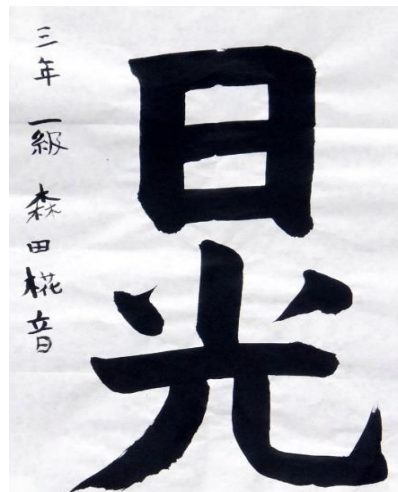 日光
三年 一級 森田椛音